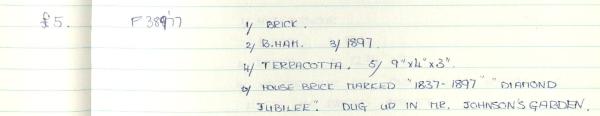 £5. F389'77 1/ BRICK.
2/ B.HAM. 3/ 1897.
4/ TERRACOTTA. 5/ 9"x4"x3".
6/ HOUSE BRICK MARKED "1837-1897" "DIAMOND
JUBILEE". DUG UP IN MR. JOHNSON'S GARDEN.